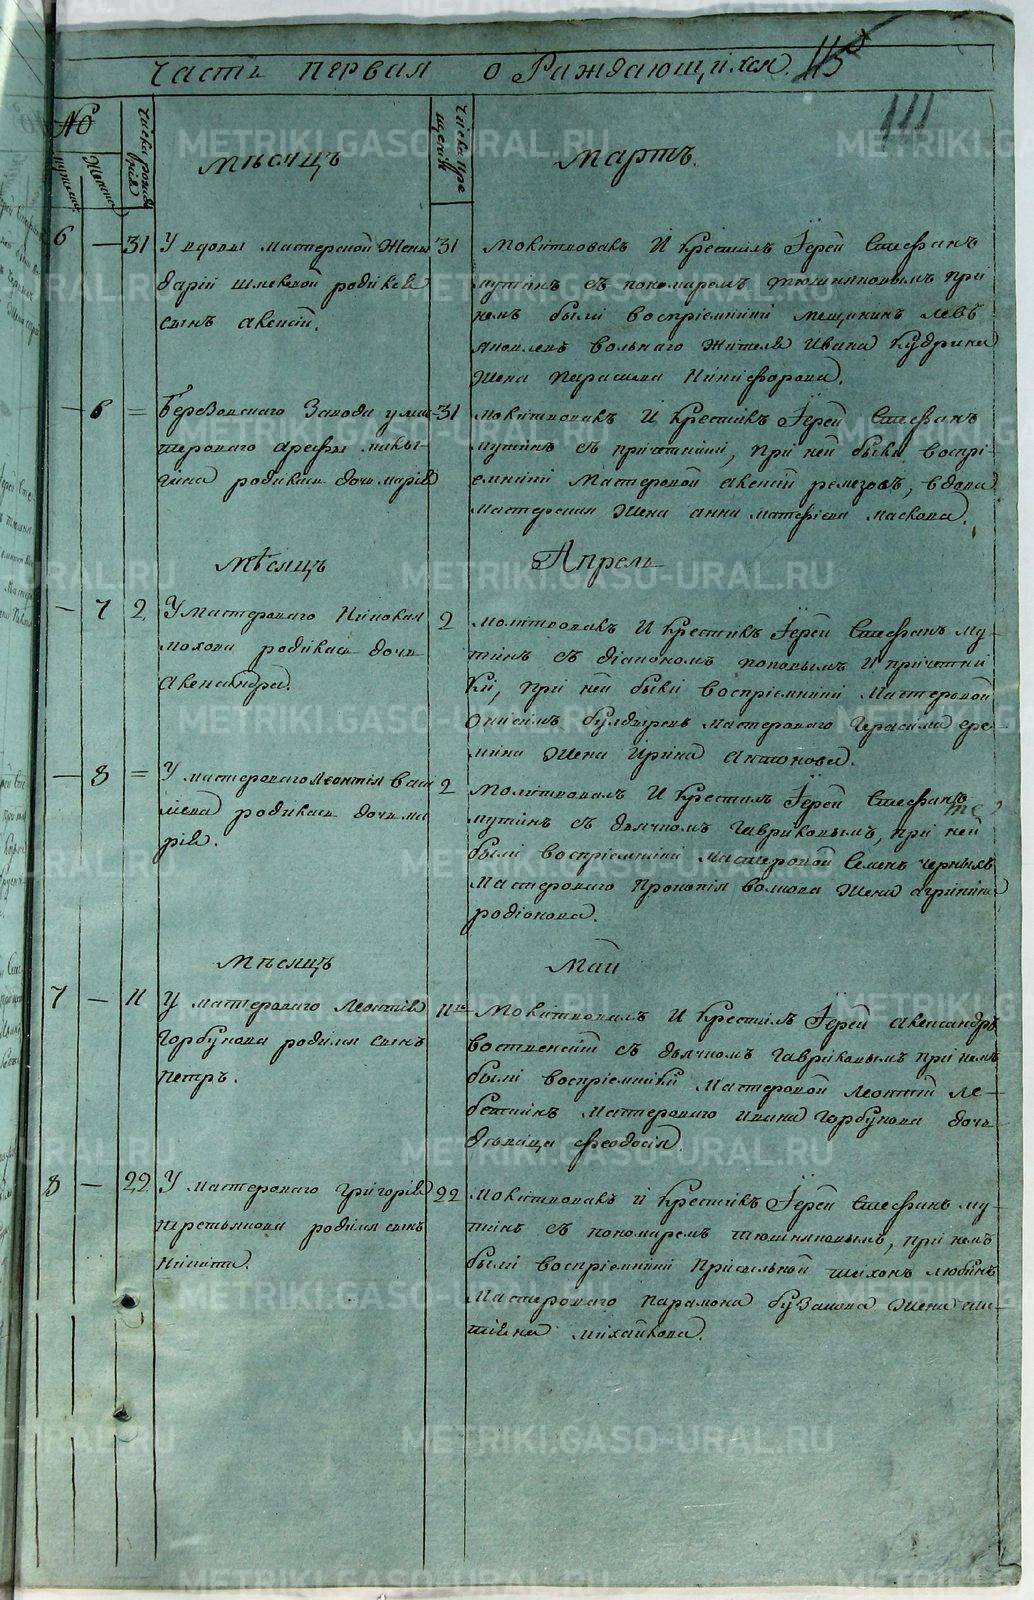 Часть первая о Раждающихся.
115
111
№
мужеска
женска
число рождения
Мѣсяцъ
число крещения
Мартъ.
6 — 31 У вдовы мастерской жены
Дарьи родился
сынъ Алексѣй.
31 Молитвовалъ и крестилъ Іерей Стефанъ
Мутинъ съ пономаремъ Тюшняковымъ при
немъ были воспріемники мещанинъ Левъ
Яковлевъ вольнаго жителя Ивана Кудрина
жена Парасковья Никифорова.
— 6 = Березовскаго Завода у мас-
тероваго Арефы
родилась дочь Марія
31 Молитвовалъ и крестилъ Іерей Стефанъ
Мутинъ съ причтники, при ней были воспрі-
емники Мастеровой Алексѣй Ремезовъ, вдова
мастерская жена Анна Матвѣева Маскова.
Мѣсяцъ Апрель
— 7 2 У мастероваго
Мохова родилась дочь
Александра.
2 Молитвовалъ и крестилъ Іерей Стефанъ Му-
тинъ съ діакономъ Поповымъ и причетни-
ки, при ней были воспріемники Мастеровой
Онисимъ мастероваго Герасима Ере-
мина жена Ирина Антонова.
— 8 = У мастероваго Леонтія Васи
льева родилась дочь Ма
рія.
2 Молитвовалъ и крестилъ Іерей Стефанъ
Мутинъ съ дьячкомъ Гавриловымъ, при ней
были воспріемники Мастеровой Семенъ Черныхъ
Мастероваго Прокопія Волкова жена Агрипина
Родіонова.
Мѣсяцъ Май
7 — 11 У мастероваго Леонтія
Горбунова родился сынъ
Петръ.
11 Молитвовалъ и крестилъ Іерей Александръ
съ дьячкомъ Гавриловымъ при немъ
были воспріемники Мастеровой Леонтій Ле-
бяткинъ мастероваго Ивана Горбунова дочь
дѣвица Феодосія.
8 — 22 У мастероваго Григорія
Перетыкова родился сынъ
Никита.
22 Молитвовалъ и крестилъ Іерей Стефанъ Му-
тинъ съ пономаремъ Тюшняковымъ, при немъ
были воспріемники Тихонъ Любинъ
мастероваго Парамона Бузанова жена
Михайлова.
METRIKI.GASO-URAL.RU